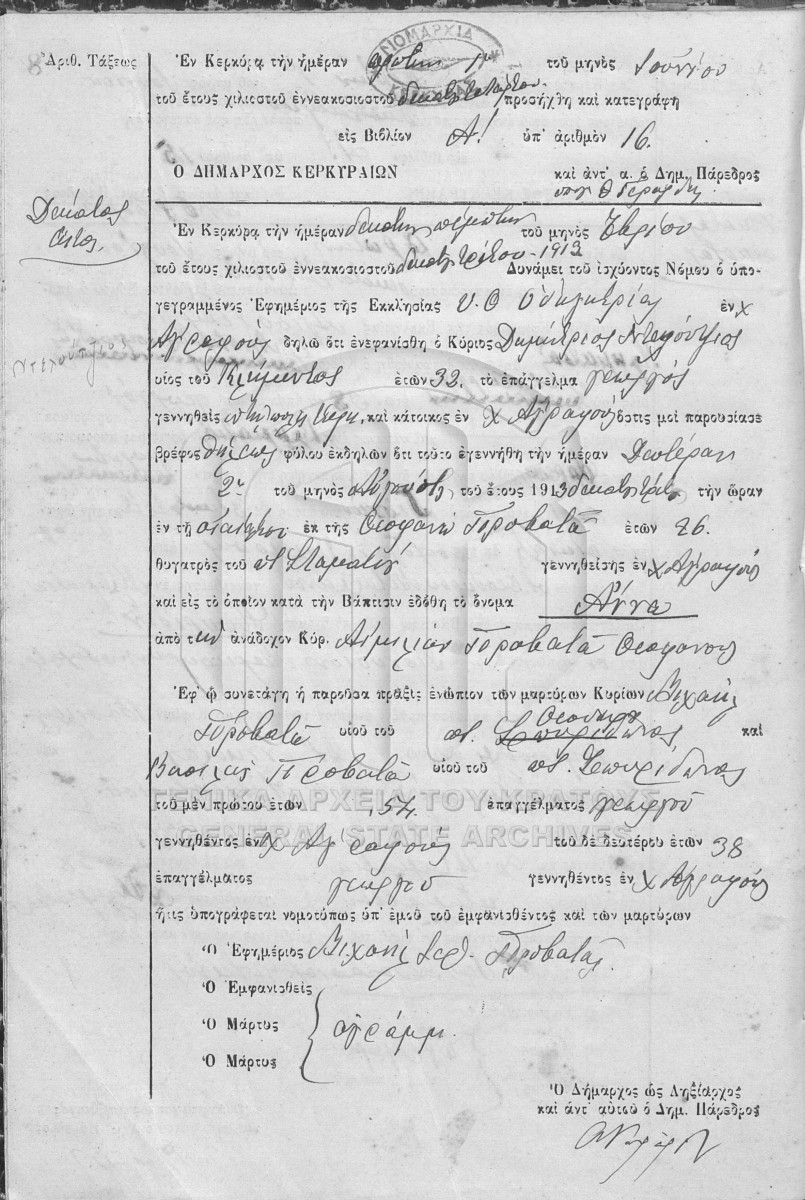 Ἀριθ. Τάξεως
ΝΟΜΑΡΧΙΑ
Ἐν Κερκύρᾳ τὴν ἡμέραν πρώτην 1ην τοῦ μηνὸς Ἰουνίου
τοῦ ἔτους χιλιοστοῦ ἐννεακοσιοστοῦ δεκάτου τετάρτου προσήχθη καὶ κατεγράφη
εἰς Βιβλίον Α! ὑπ' ἀριθμὸν 16.
Ο ΔΗΜΑΡΧΟΣ ΚΕΡΚΥΡΑΙΩΝ καὶ ἀντ' α. ὁ Δημ. Πάρεδρος
Δέκατος
ἕκτος
Ἐν Κερκύρᾳ τὴν ἡμέραν δεκάτην πέμπτην τοῦ μηνὸς
τοῦ ἔτους χιλιοστοῦ ἐννεακοσιοστοῦ δεκάτου τρίτου 1913 Δυνάμει τοῦ ἰσχύοντος Νόμου ὁ ὑπο-
γεγραμμένος Ἐφημέριος τῆς Εκκλησίας Υ. Θ. Ὁδηγητρίας ἐν Χ
Ἀγραφούς δηλῶ ὅτι ἐνεφανίσθη ὁ Κύριος Δημήτριος
υἱὸς τοῦ Κλήμεντος ἐτῶν 32. τὸ ἐπάγγελμα γεωργός
γεννηθεὶς καὶ κάτοικος ἐν Χ Ἀγραφούς ὅστις μοι παρουσίασε
βρέφος θήλεως φύλου ἐκδηλῶν ὅτι τοῦτο ἐγεννήθη τὴν ἡμέραν Δευτέραν
2αν τοῦ μηνὸς Αὐγούστου τοῦ ἔτους 1913 δεκάτου τρίτου τὴν ὥραν
ἐν τῇ ἐκ τῆς Θεοφανῶ Προβατᾶ ἐτῶν 26.
θυγατρὸς τοῦ ποτ. Σταματίου γεννηθείσης ἐν Χ Ἀγραφούς
καὶ εἰς τὸ ὁποῖον κατὰ τὴν Βάπτισιν ἐδόθη τὸ ὄνομα Ἄννα
ἀπὸ τὴν ἀνάδοχον Κύρ. Αἰμιλίαν Προβατᾶ Θεοφάνους
Ἐφ' ᾧ συνετάγη ἡ παροῦσα πρᾶξις ἐνώπιον τῶν μαρτύρων Κυρίων Μιχαὴλ
Προβατᾶ υἱοῦ τοῦ ποτ. Σπυρίδωνος καὶ
Βασίλης Προβατᾶ υἱοῦ τοῦ ποτ. Σπυρίδωνος
ΓΕΝΙΚΑ ΑΡΧΕΙΑ ΤΟΥ ΚΡΑΤΟΥΣ
τοῦ μὲν πρώτου ἐτῶν 54. ἐπαγγέλματος γεωργοῦ
GENERAL STATE ARCHIVES
γεννηθέντος ἐν Χ Ἀγραφούς τοῦ δὲ δευτέρου ἐτῶν 38
ἐπαγγέλματος γεωργοῦ γεννηθέντος ἐν Χ Ἀγραφούς
ἥτις ὑπογράφεται νομοτύπως ὑπ' ἐμοῦ τοῦ ἐμφανισθέντος καὶ τῶν μαρτύρων
Ὁ Ἐφημέριος Μιχαὴλ Ἱερ. Προβατᾶς
Ὁ Ἐμφανισθεὶς
Ὁ Μάρτυς ἀγράμμ.
Ὁ Μάρτυς
Ὁ Δήμαρχος ὡς Ληξίαρχος
καὶ ἀντ' αὐτοῦ ὁ Δημ. Πάρεδρος